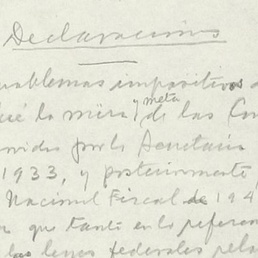 Declaraciones
problemas impositivos
fué la mira y meta de las Con
nidas por la Secretaría
1933, y posteriormente
Nacional Fiscal de 194
que tanto en lo referen
las leyes federales